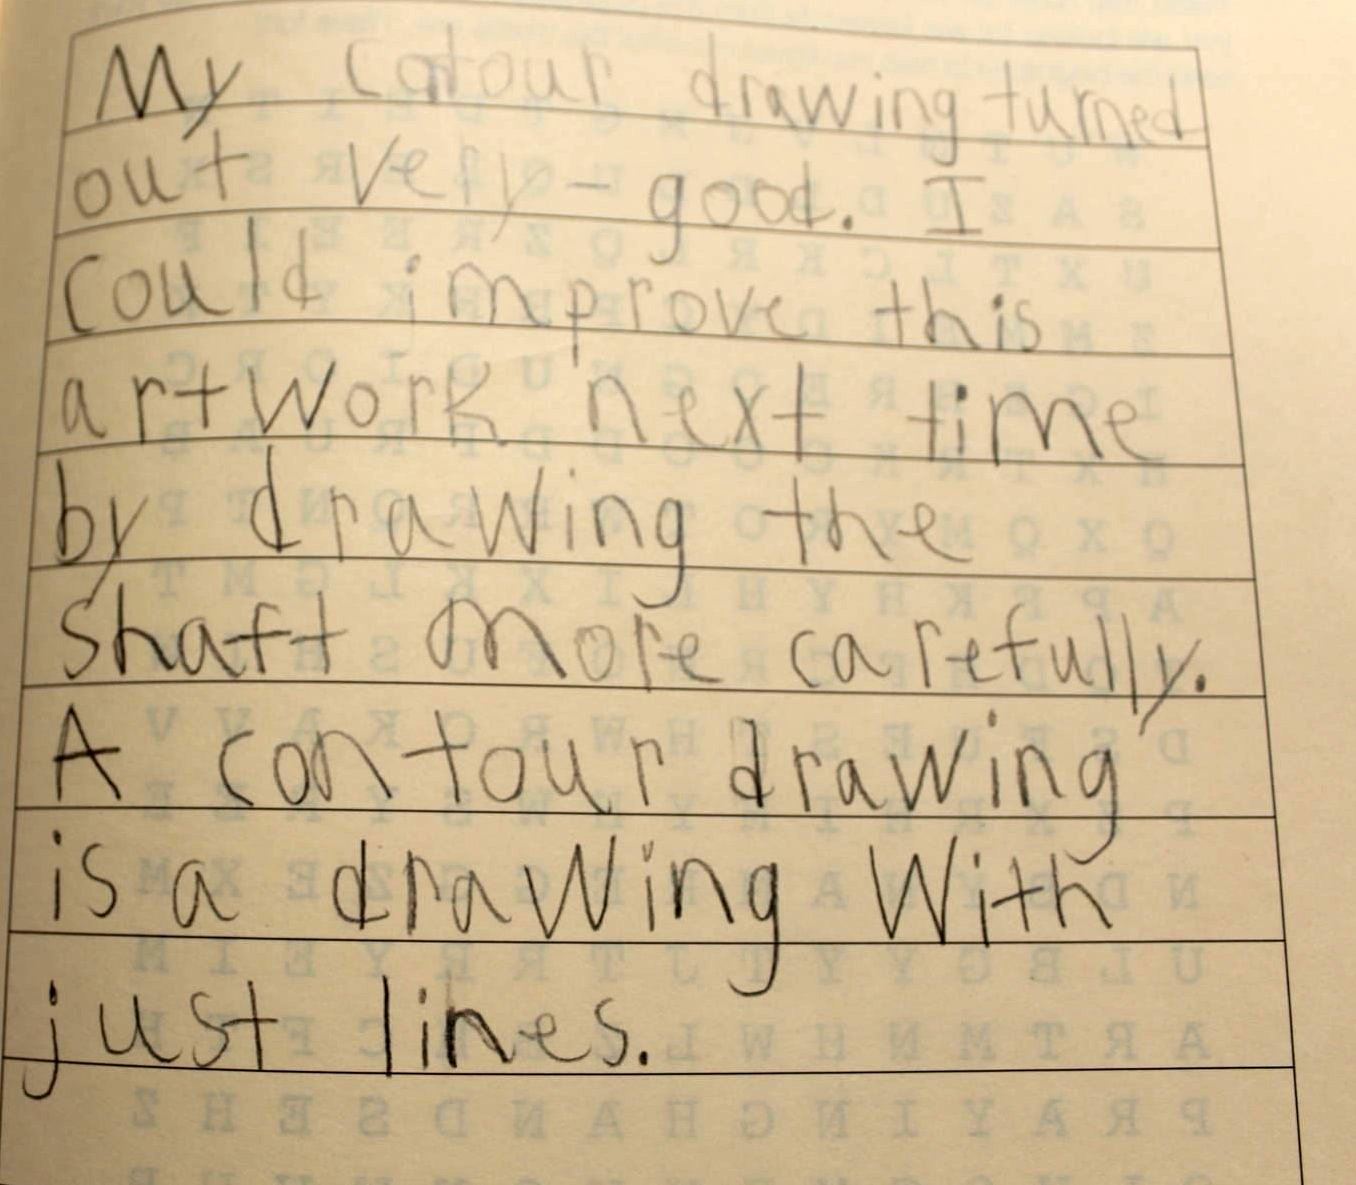 My catour drawing turned
out very-good. I
could improve this
artwork next time
by drawing the
shaft more carefully.
A contour drawing
is a drawing with
just lines.